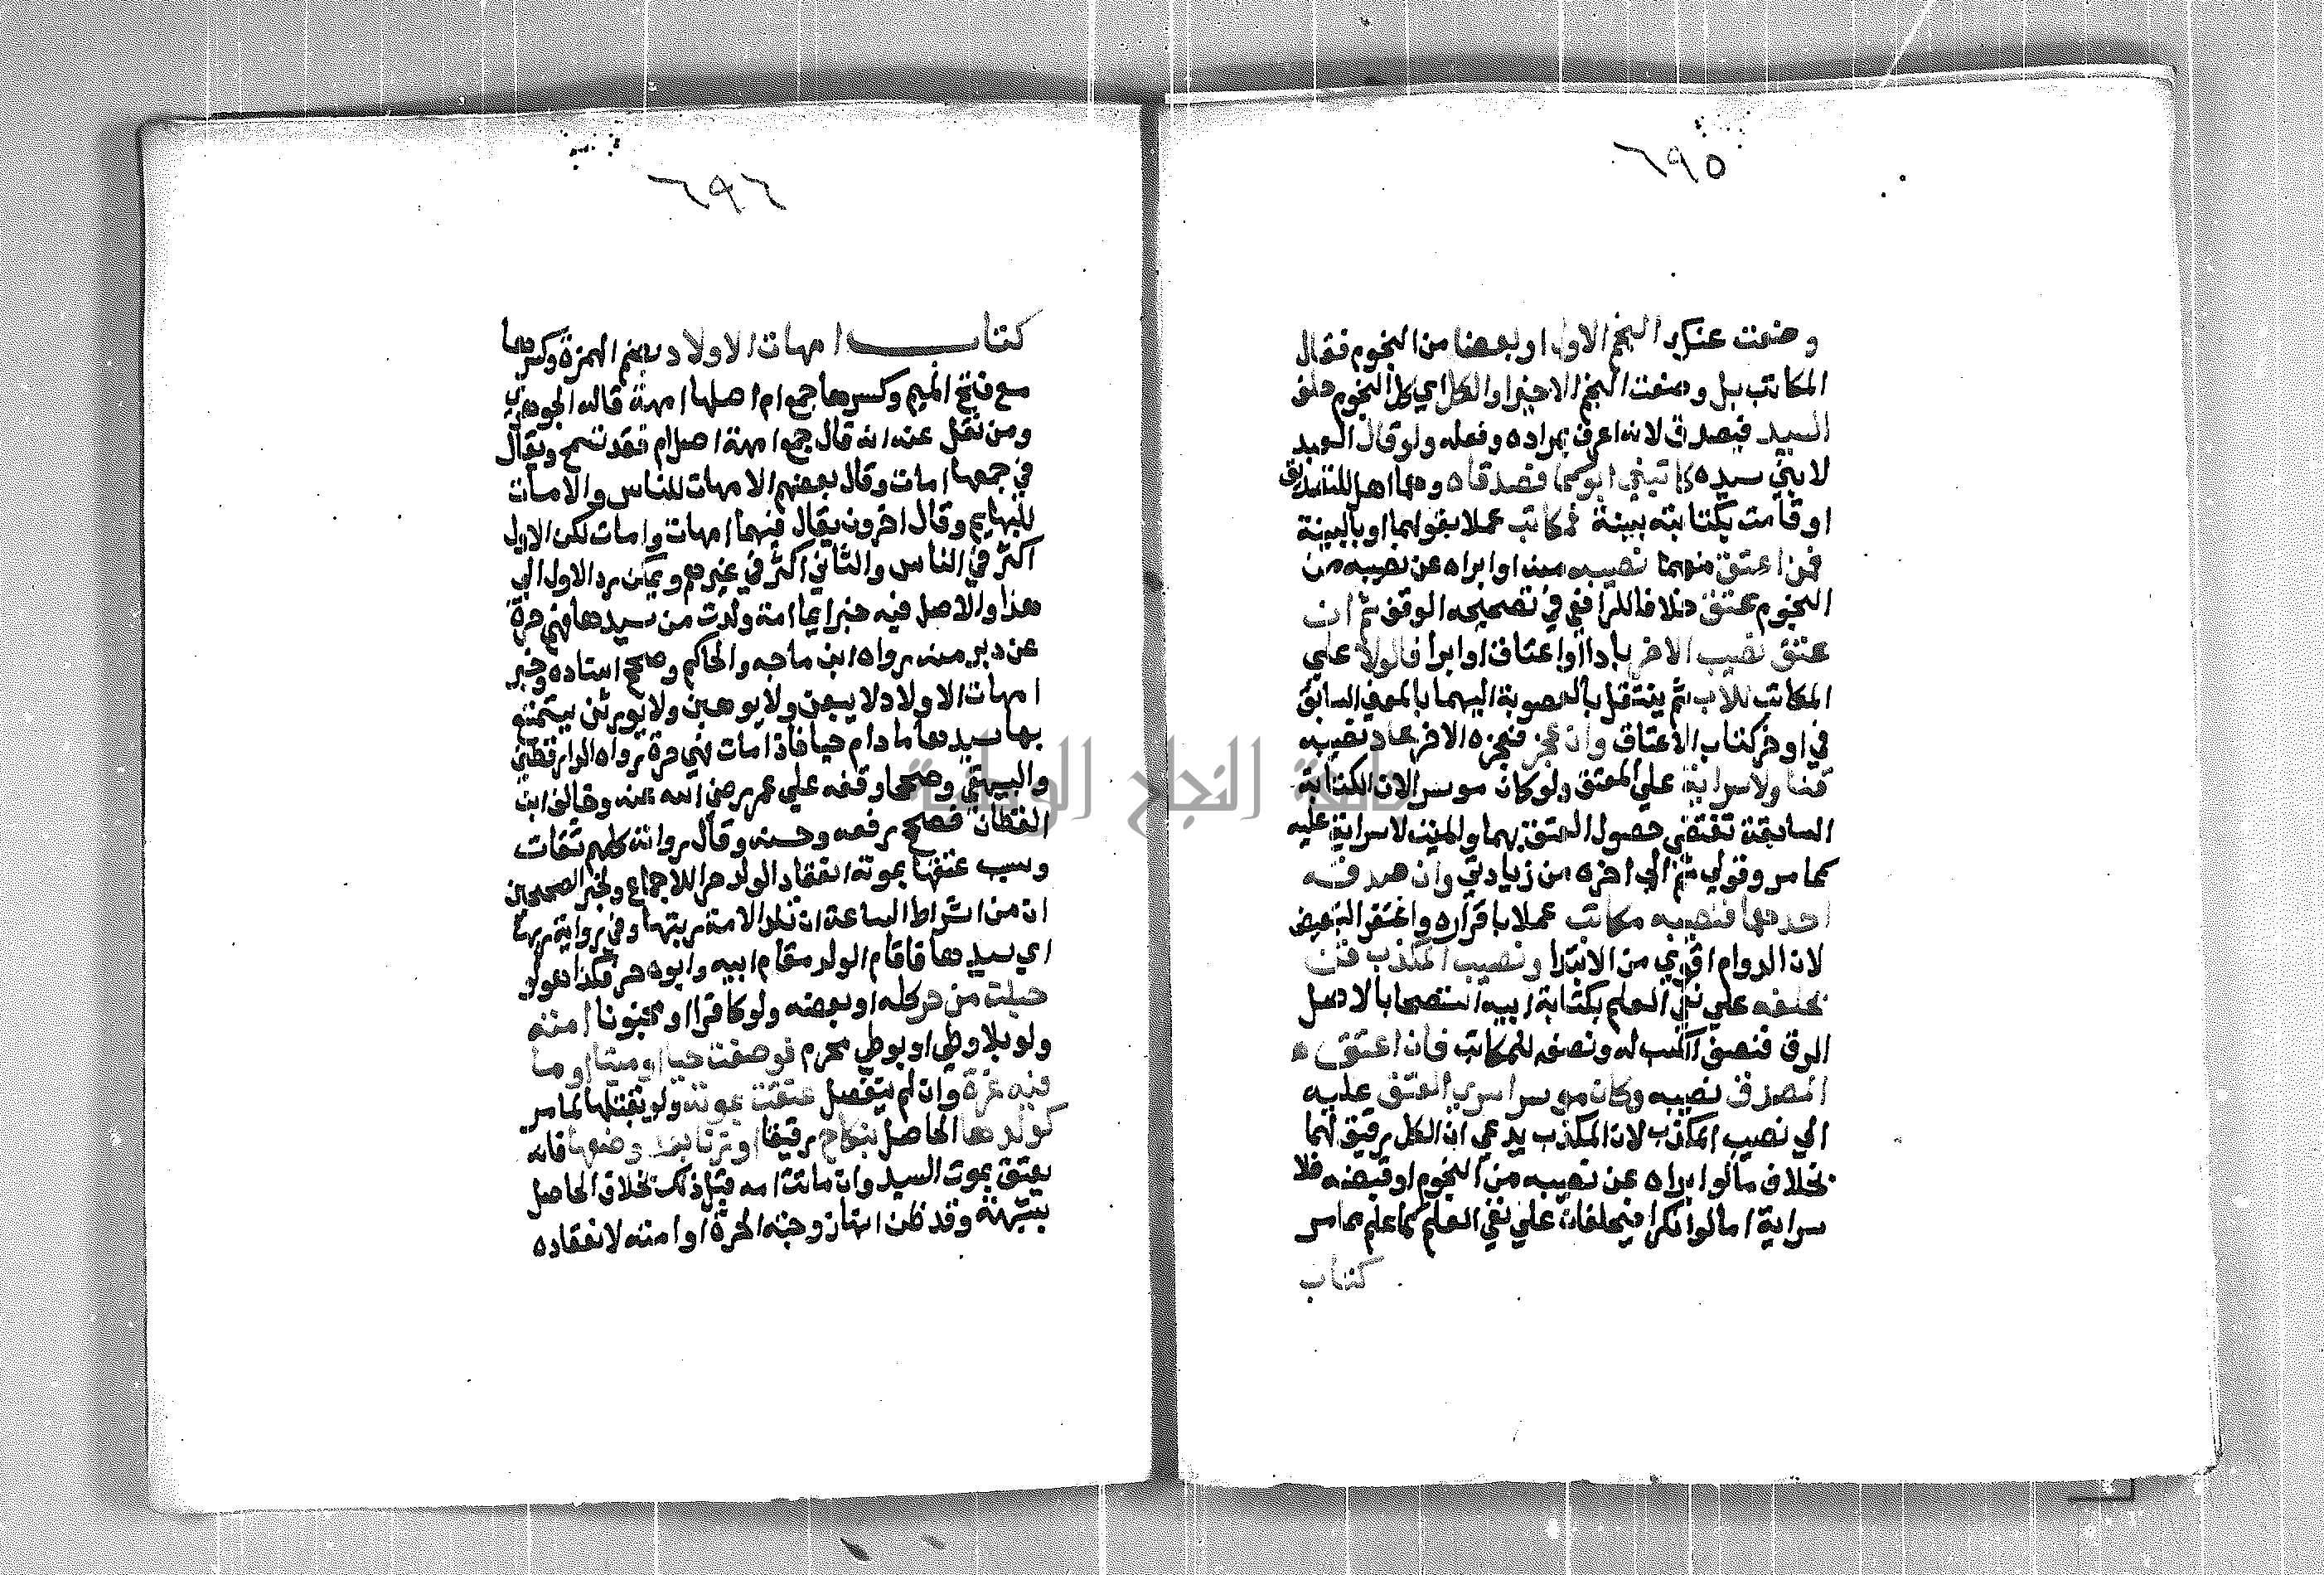 ٦٩٥
وضعت عنك النجم الاول او بعضا من النجوم فقال
المكاتب بل وضعت النجم الاخير او الكل اي كل النجوم حلف
السيد فيصدق لانه اعرف بمراده وفعله ولو قال العبد
لابني سيده كاتبني ابوكما فصدقاه وهما اهل للتصديق
او قامت بكتابته بينة فمكاتب عملا بقولهما او بالبينة
فمن اعتق منهما نصيبه منه او ابراه عن نصيبه من
النجوم عتق خلافا للرافعي في تصحيحه الوقف ثم ان
عتق نصيب الاخر بادا او اعتاق او ابرا فالولا علي
المكاتب للاب ثم ينتقل بالعصوبة اليهما بالمعني السابق
في اوخر كتاب الاعتاق وان عجز فعجزه الاخر عاد نصيبه
قنا ولا سراية علي المعتق ولو كان موسرا لان الكتابة
السابقة تقتضي حصول العتق بهما والميت لا سراية عليه
كما مر وقولي ثم الي اخره من زيادتي وان صدقه
احدهما فنصيبه مكاتب عملا باقراره واغتفر التبعيض
لان الدوام اقوي من الابتدا ونصيب المكذب قن
بحلفه علي نفي العلم بكتابة ابيه استصحابا لاصل
الرق فنصف الكسب له ونصفه للمكاتب فان اعتق
المصدق نصيبه وكان موسرا سري العتق عليه
الي نصيب المكذب لان المكذب يدعي ان الكل رقيق لهما
بخلاف ما لو ابراه عن نصيبه من النجوم او قبضه فلا
سراية اما لو انكرا فيحلفان علي نفي العلم كما علم مما مر
كتاب
٦٩٦
كتاب امهات الاولاد بضم الهمزة وكسرها
مع فتح الميم وكسرها جمع ام اصلها امهة قاله الجوهري
ومن نقل عنه انه قال جمع امهة اصل ام فقد تسمح ويقال
في جمعها امات وقال بعضهم الامهات للناس والامات
للبهايم وقال اخرون يقال فيهما امهات وامات لكن الاول
اكثر في الناس والثاني اكثر في غيرهم ويمكن رد الاول الي
هذا والاصل فيه خبر ايما امة ولدت من سيدها فهي حرة
عن دبر منه رواه ابن ماجه والحاكم وصحح اسناده وخبر
امهات الاولاد لا يبعن ولا يوهبن ولا يورثن يستمتع
بها سيدها ما دام حيا فاذا مات فهي حرة رواه الدارقطني
والبيهقي وصححا وقفه علي عمر رضي الله عنه وخالف ابن
القطان فصحح رفعه وحسنه وقال رواته كلهم ثقات
وسبب عتقها بموته انعقاد الولد حرا للاجماع ولخبر الصحيحين
ان من اشراط الساعة ان تلد الامة ربتها وفي رواية ربها
اي سيدها فاقام الولد مقام ابيه وابوه حر فكذا هو لو
حبلت من حر كله او بعضه ولو كافرا او مجنونا امته
ولو بلا وطي او بوطي محرم فوضعت حيا او ميتا او ما
فيه غرة وان لم ينفصل عتقت بموته ولو بقتلها لما مر
كولدها الحاصل بنكاح رقيقا او زنا بعد وضعها فانه
يعتق بموت السيد وان ماتت امه قبل ذلك بخلاف الحاصل
بشبهة وقد ظن انها زوجته الحرة او امته لانعقاده